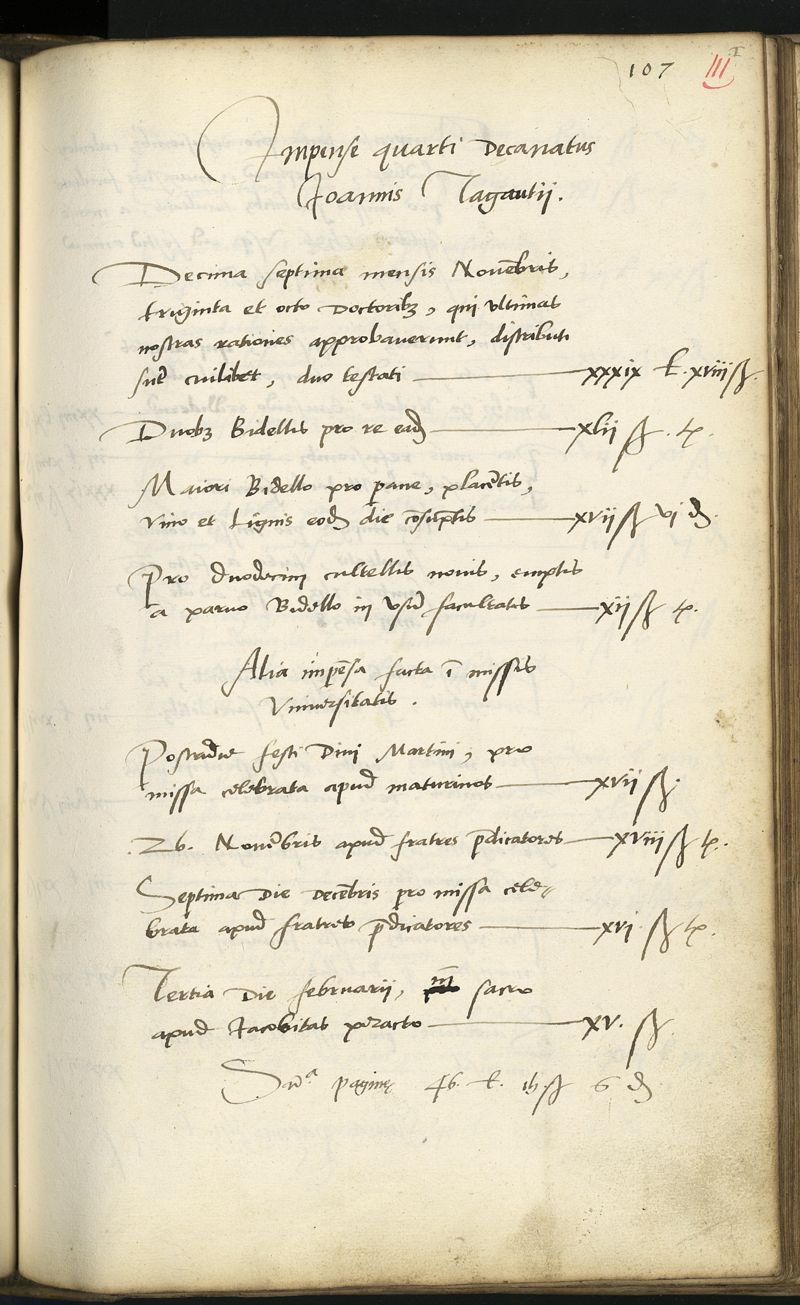 107 III
Impense quarti Decanatus
Joannis Tagautii.
Decima septima mensis Novēbris,
triginta et octo Doctoribꝫ, qui ultimas
nostras rationes approbaverunt, distributi
sūt cuilibet, duo testati — xxxix ł. xviii ß.
Duobꝫ Bidellis pro re eadē — xlii ß. tꝭ.
Maiori Bidello pro pane, placētis,
vino et lignis eodē die cōsūptis — xvii ß vi đ.
Pro duodecim cultellis novis, emptis
a parvo Bidello in usū facultatis — xii ß tꝭ.
Alia impēsa facta ī missis
Universitatis.
Postridie festi Divi Martini, pro
missa celebrata apud maturinos — xvii ß.
26. Novēbris apud fratres p̄dicatores — xviii ß tꝭ.
Septima die decēbris pro missa cele-
brata apud fratres p̄dicatores — xvi ß tꝭ.
Tertia die februarii, in sacro
apud Jacobitas peracto — xv. ß
Sūᵃ paginę 46. ł. ß 6 đ